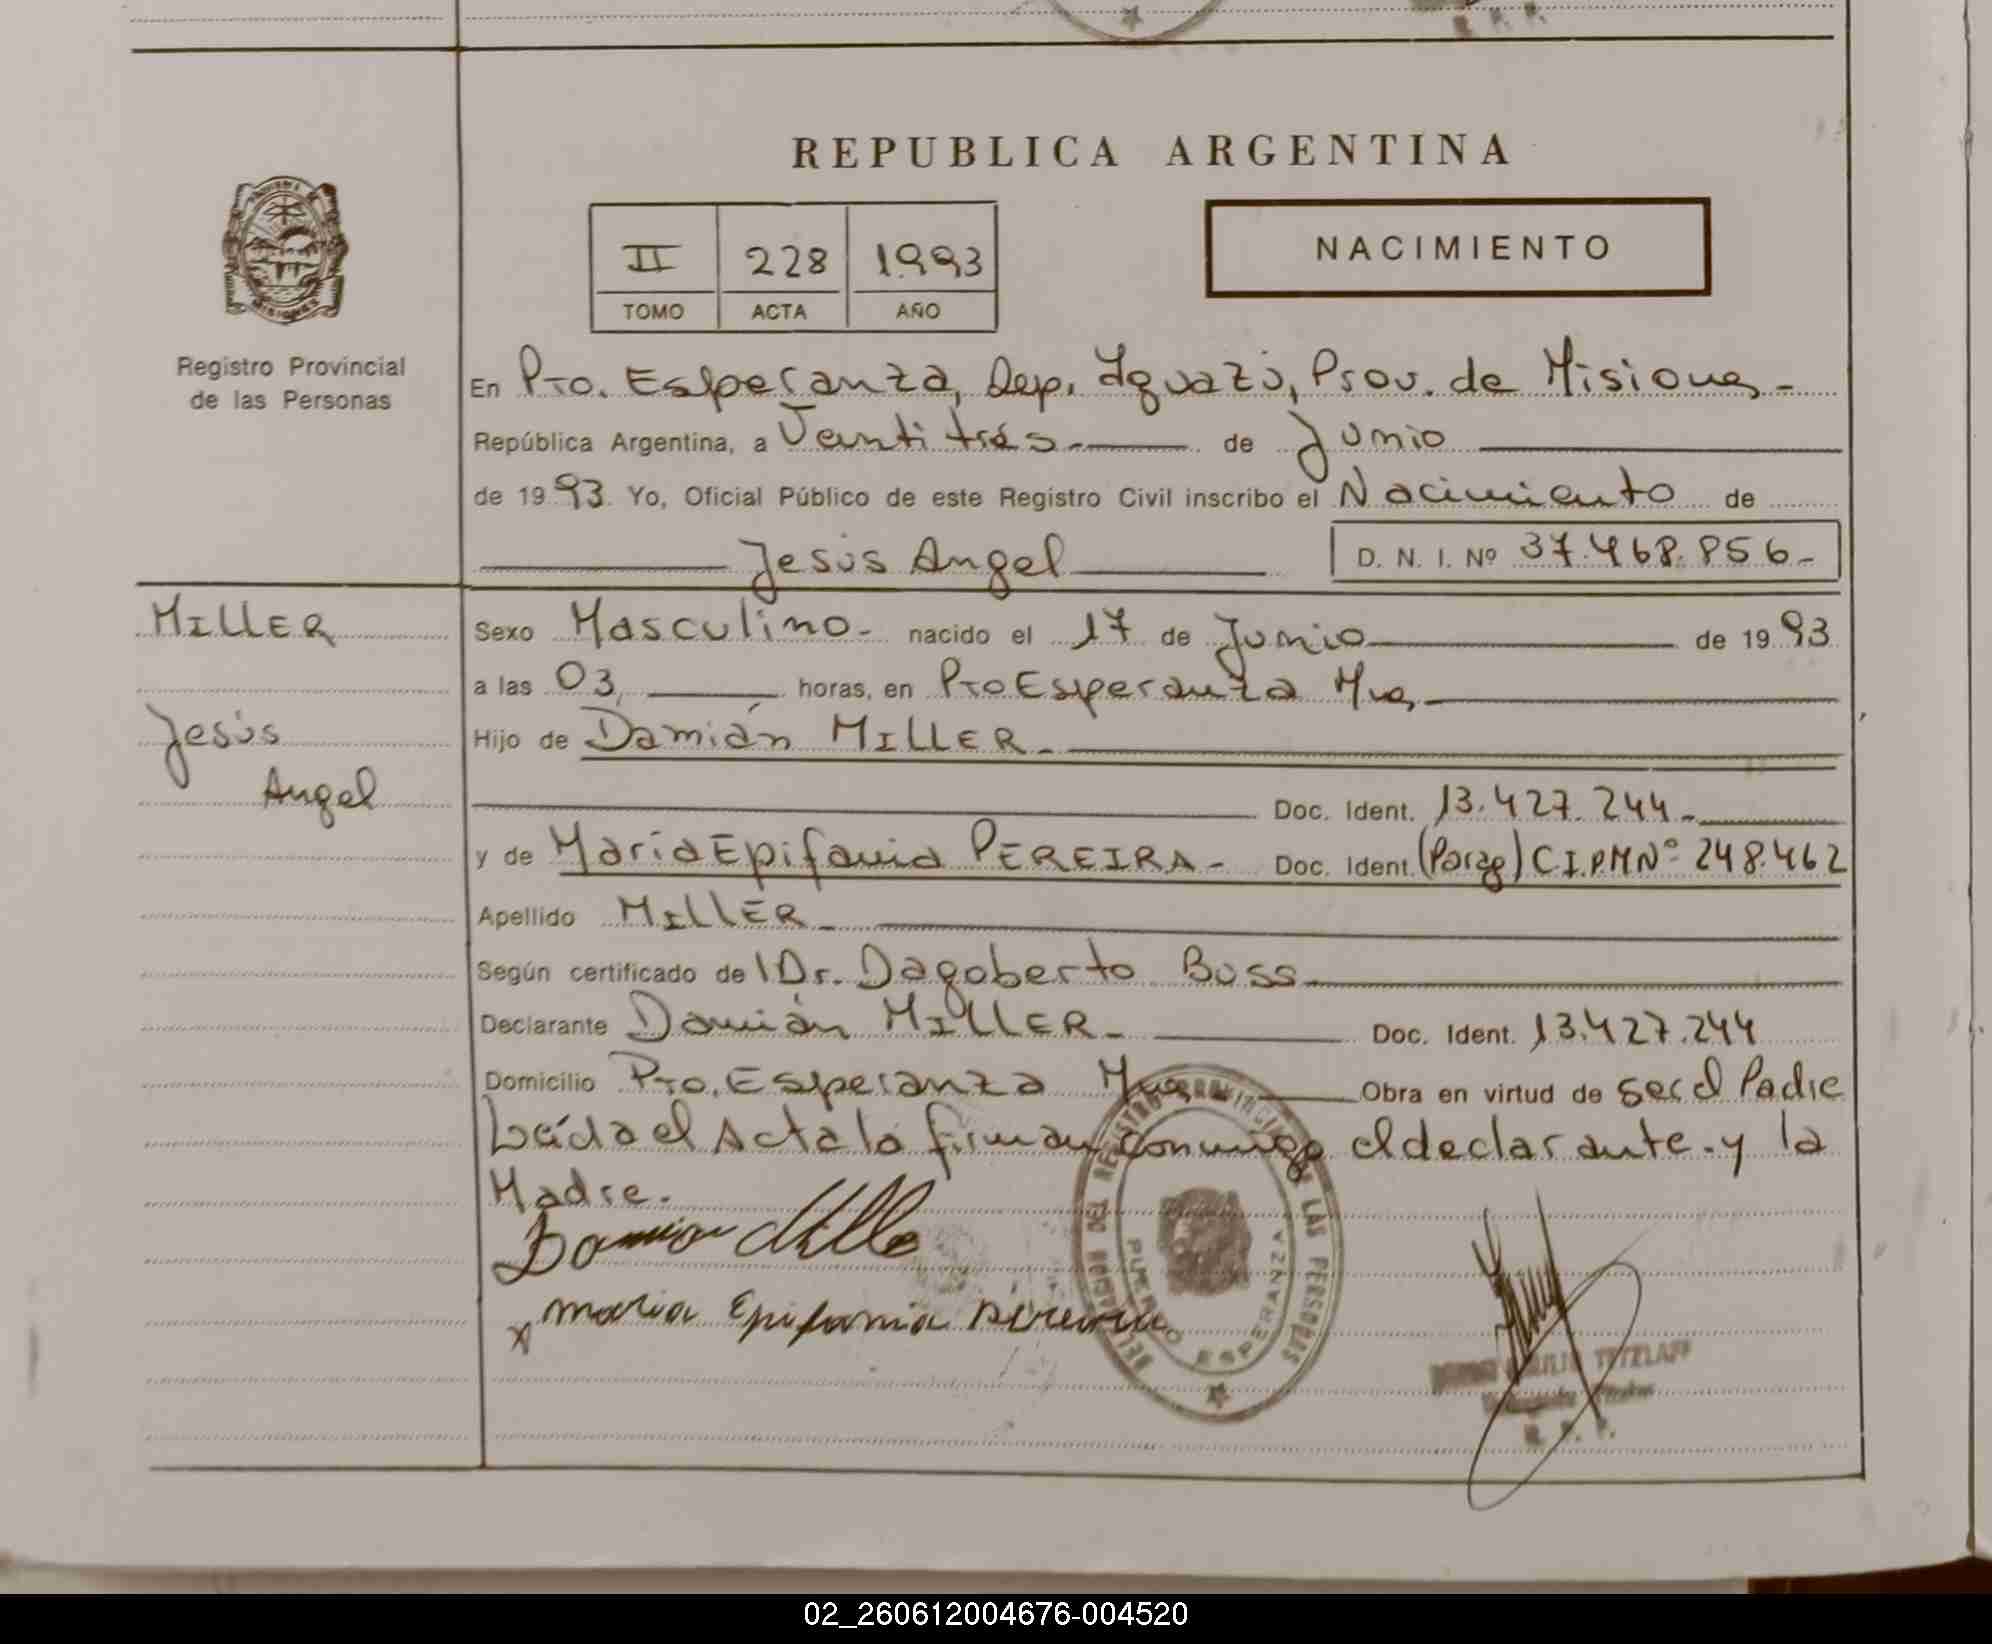 REPUBLICA ARGENTINA
II 228 1993
TOMO ACTA AÑO
NACIMIENTO
Registro Provincial
de las Personas
En Pto. Esperanza, Dep. Iguazú, Prov. de Misiones-
República Argentina, a Veintitrés.- de Junio
de 19 93. Yo, Oficial Público de este Registro Civil inscribo el Nacimiento de
Jesús Angel D. N. I. Nº 37.468.856-
MILLER
Jesús
Angel
Sexo Masculino- nacido el 17 de Junio de 19 93
a las 03, horas, en Pto Esperanza Mnes,
Hijo de Damián MILLER-
Doc. Ident. 13.427.244-
y de María Epifania PEREIRA- Doc. Ident. (Parag) C.I.P.M Nº 248.462
Apellido MILLER-
Según certificado de l Dr. Dagoberto Boss
Declarante Damián MILLER- Doc. Ident. 13.427.244
Domicilio Pto. Esperanza Mnes, Obra en virtud de ser el Padre
Leída el Acta la firman conmigo el declarante.y la
Madre.
Damian Miller
x maria Epifania Pereira
DEL REGISTRO PROVINCIAL DE LAS PERSONAS
PUERTO ESPERANZA
TETZLAFF
Titular
R. P. P.
02_260612004676-004520